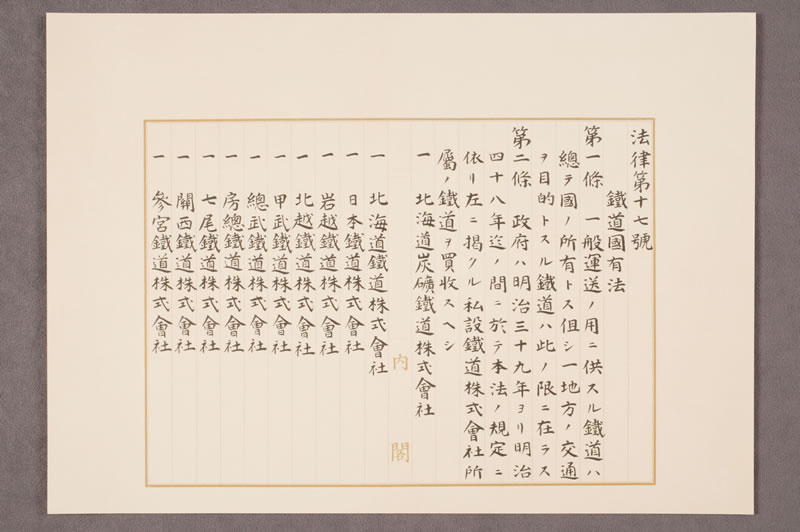 法律第十七號
鐵道國有法
第一條 一般運送ノ用ニ供スル鐵道ハ
總テ國ノ所有トス但シ一地方ノ交通
ヲ目的トスル鐵道ハ此ノ限ニ在ラス
第二條 政府ハ明治三十九年ヨリ明治
四十八年迄ノ間ニ於テ本法ノ規定ニ
依リ左ニ揭クル私設鐵道株式會社所
屬ノ鐵道ヲ買收スヘシ
一 北海道炭礦鐵道株式會社
內閣
一 北海道鐵道株式會社
一 日本鐵道株式會社
一 岩越鐵道株式會社
一 北越鐵道株式會社
一 甲武鐵道株式會社
一 總武鐵道株式會社
一 房總鐵道株式會社
一 七尾鐵道株式會社
一 關西鐵道株式會社
一 參宮鐵道株式會社